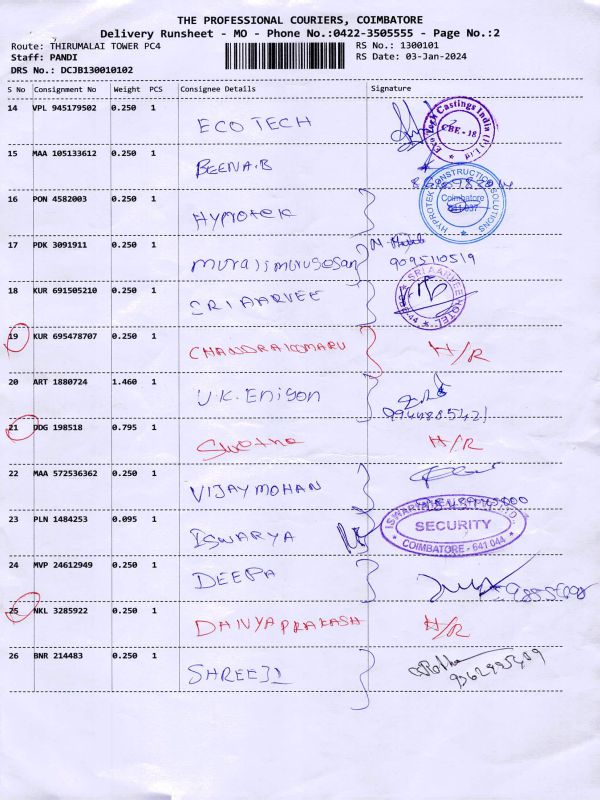 THE PROFESSIONAL COURIERS, COIMBATORE
Delivery Runsheet - MO - Phone No.:0422-3505555 - Page No.:2
Route: THIRUMALAI TOWER PC4
RS No.: 1300101
Staff: PANDI
RS Date: 03-Jan-2024
DRS No.: DCJB130010102
S No Consignment No Weight PCS Consignee Details Signature
14 VPL 945179502 0.250 1 ECOTECH
CBE - 18
15 MAA 105133612 0.250 1 BEENA.B
16 PON 4582003 0.250 1 HYMOTEK
HYPROTEK CONSTRUCTION SOLUTIONS
Coimbatore
641 037
17 PDK 3091911 0.250 1
9095110519
18 KUR 691505210 0.250 1 SRI AARVEE
SRI AARVEE HOTEL
19 KUR 695478707 0.250 1 CHANDRAKUMARU H/R
20 ART 1880724 1.460 1 U.K. Eniyon
21 DDG 198518 0.795 1 Swetha H/R
22 MAA 572536362 0.250 1 VIJAY MOHAN
23 PLN 1484253 0.095 1 ISWARYA
SECURITY
COIMBATORE - 641 044
24 MVP 24612949 0.250 1 DEEPA
25 NKL 3285922 0.250 1 DANYAPRAKASH H/R
26 BNR 214483 0.250 1 SHREEJI